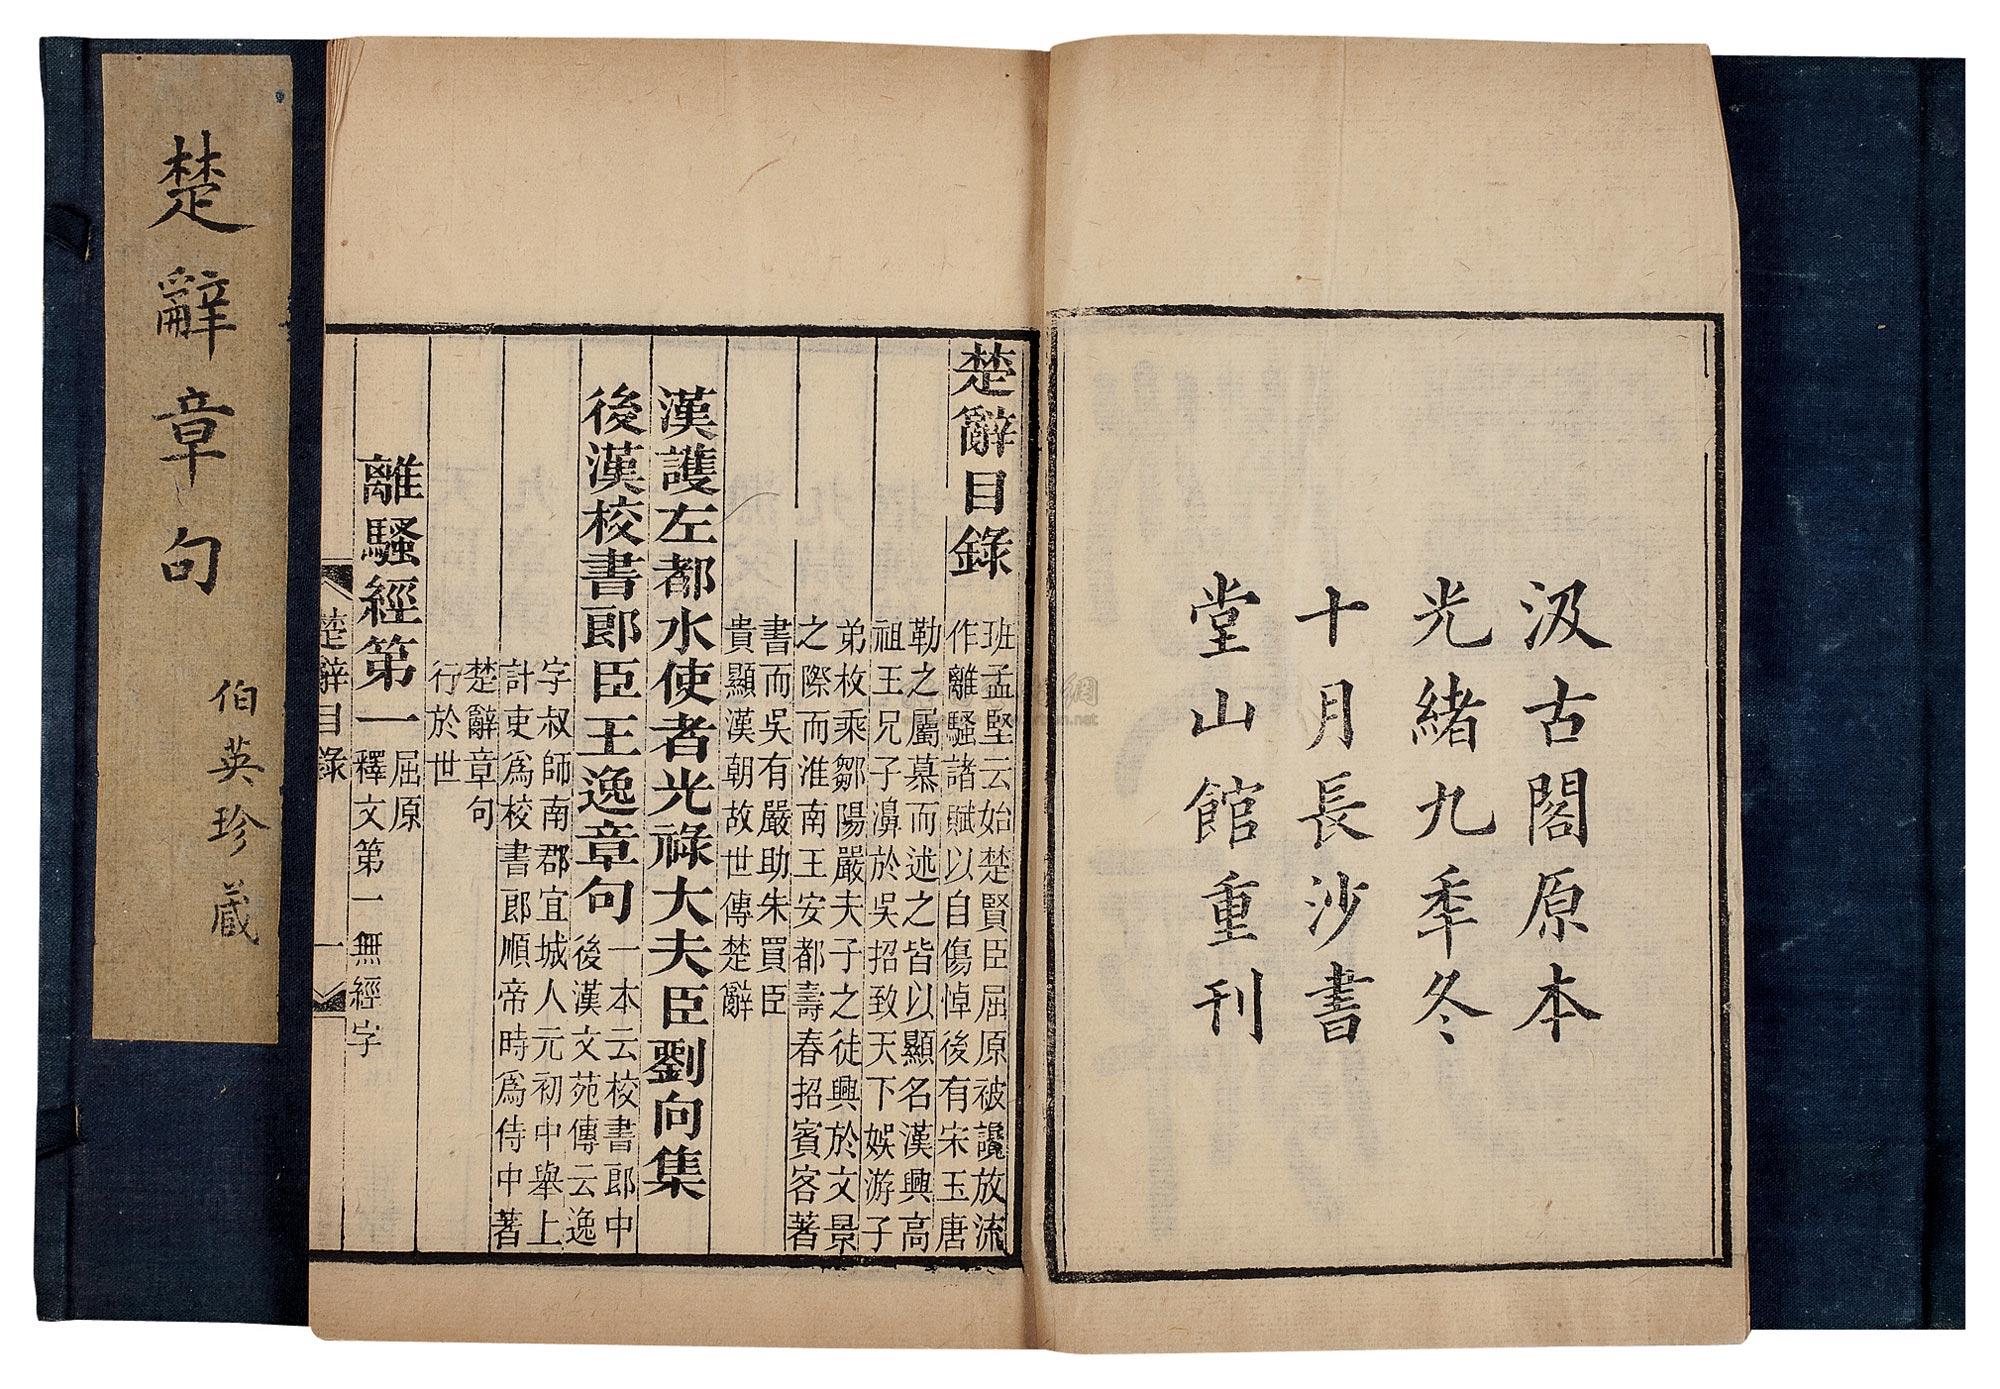 汲古閣原本
光緒九秊冬
十月長沙書
堂山館重刊
楚辭目錄
班孟堅云始楚賢臣屈原被讒放流
作離騷諸賦以自傷悼後有宋玉唐
勒之屬慕而述之皆以顯名漢興高
祖王兄子濞於吳招致天下娛游子
弟枚乘鄒陽嚴夫子之徒興於文景
之際而淮南王安都壽春招賓客著
書而吳有嚴助朱買臣
貴顯漢朝故世傳楚辭
漢護左都水使者光祿大夫臣劉向集
後漢校書郎臣王逸章句
一本云校書郎中
後漢文苑傳云逸
字叔師南郡宜城人元初中舉上
計吏爲校書郎順帝時爲侍中著
楚辭章句
行於世
離騷經第一
屈原
釋文第一無經字
楚辭目錄 一
楚辭章句
伯英珍藏